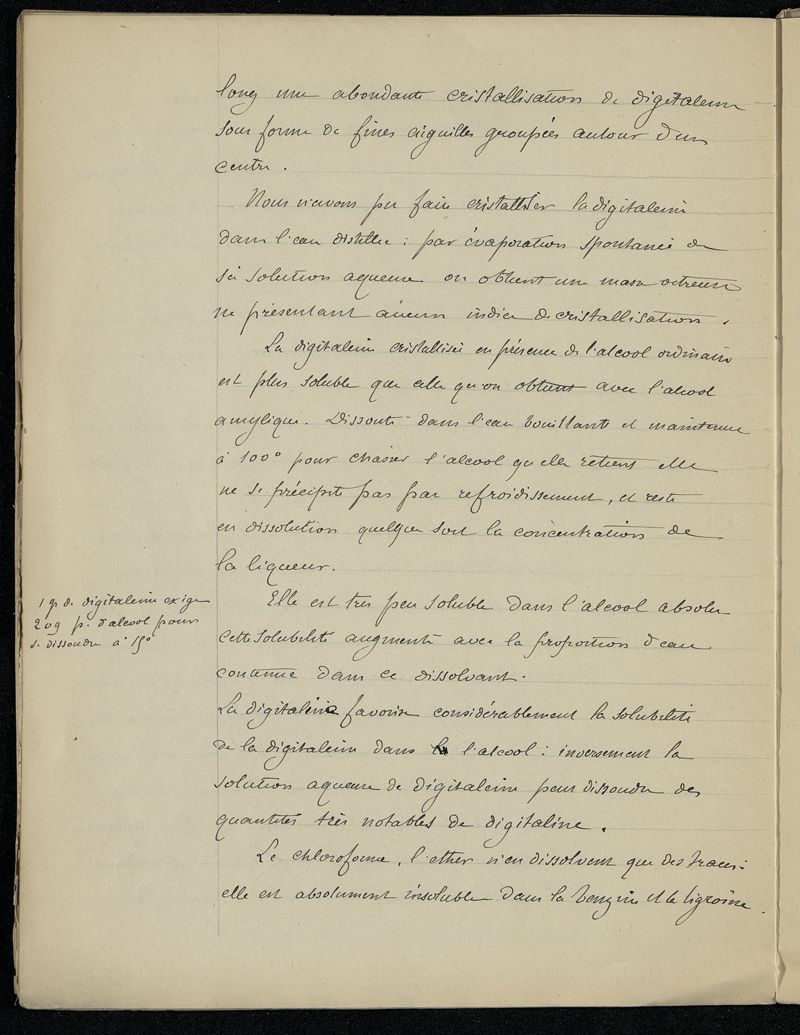 long une abondante cristallisation de digitaleine
sous forme de fines aiguilles groupées autour d'un
centre.
Nous n'avons pu faire cristalliser la digitaleine
dans l'eau distillée : par évaporation spontanée de
sa solution aqueuse on obtient une masse vitreuse
ne présentant aucun indice de cristallisation.
La digitaleine cristallisée en présence de l'alcool ordinaire
est plus soluble que celle qu'on obtient avec l'alcool
amylique. Dissoute dans l'eau bouillante et maintenue
à 100° pour chasser l'alcool qu'elle retient elle
ne se précipite pas par refroidissement, et reste
en dissolution quelque soit la concentration de
la liqueur.
1 gr de digitaleine exige
209 p. d'alcool pour
se dissoudre à 15°
Elle est très peu soluble dans l'alcool absolu
cette solubilité augmente avec la proportion d'eau
contenue dans ce dissolvant.
La digitaline favorise considérablement la solubilité
de la digitaleine dans l'alcool : inversement la
solution aqueuse de digitaleine peut dissoudre des
quantités très notables de digitaline.
Le chloroforme, l'ether n'en dissolvent que des traces :
elle est absolument insoluble dans la benzine et la ligroïne.